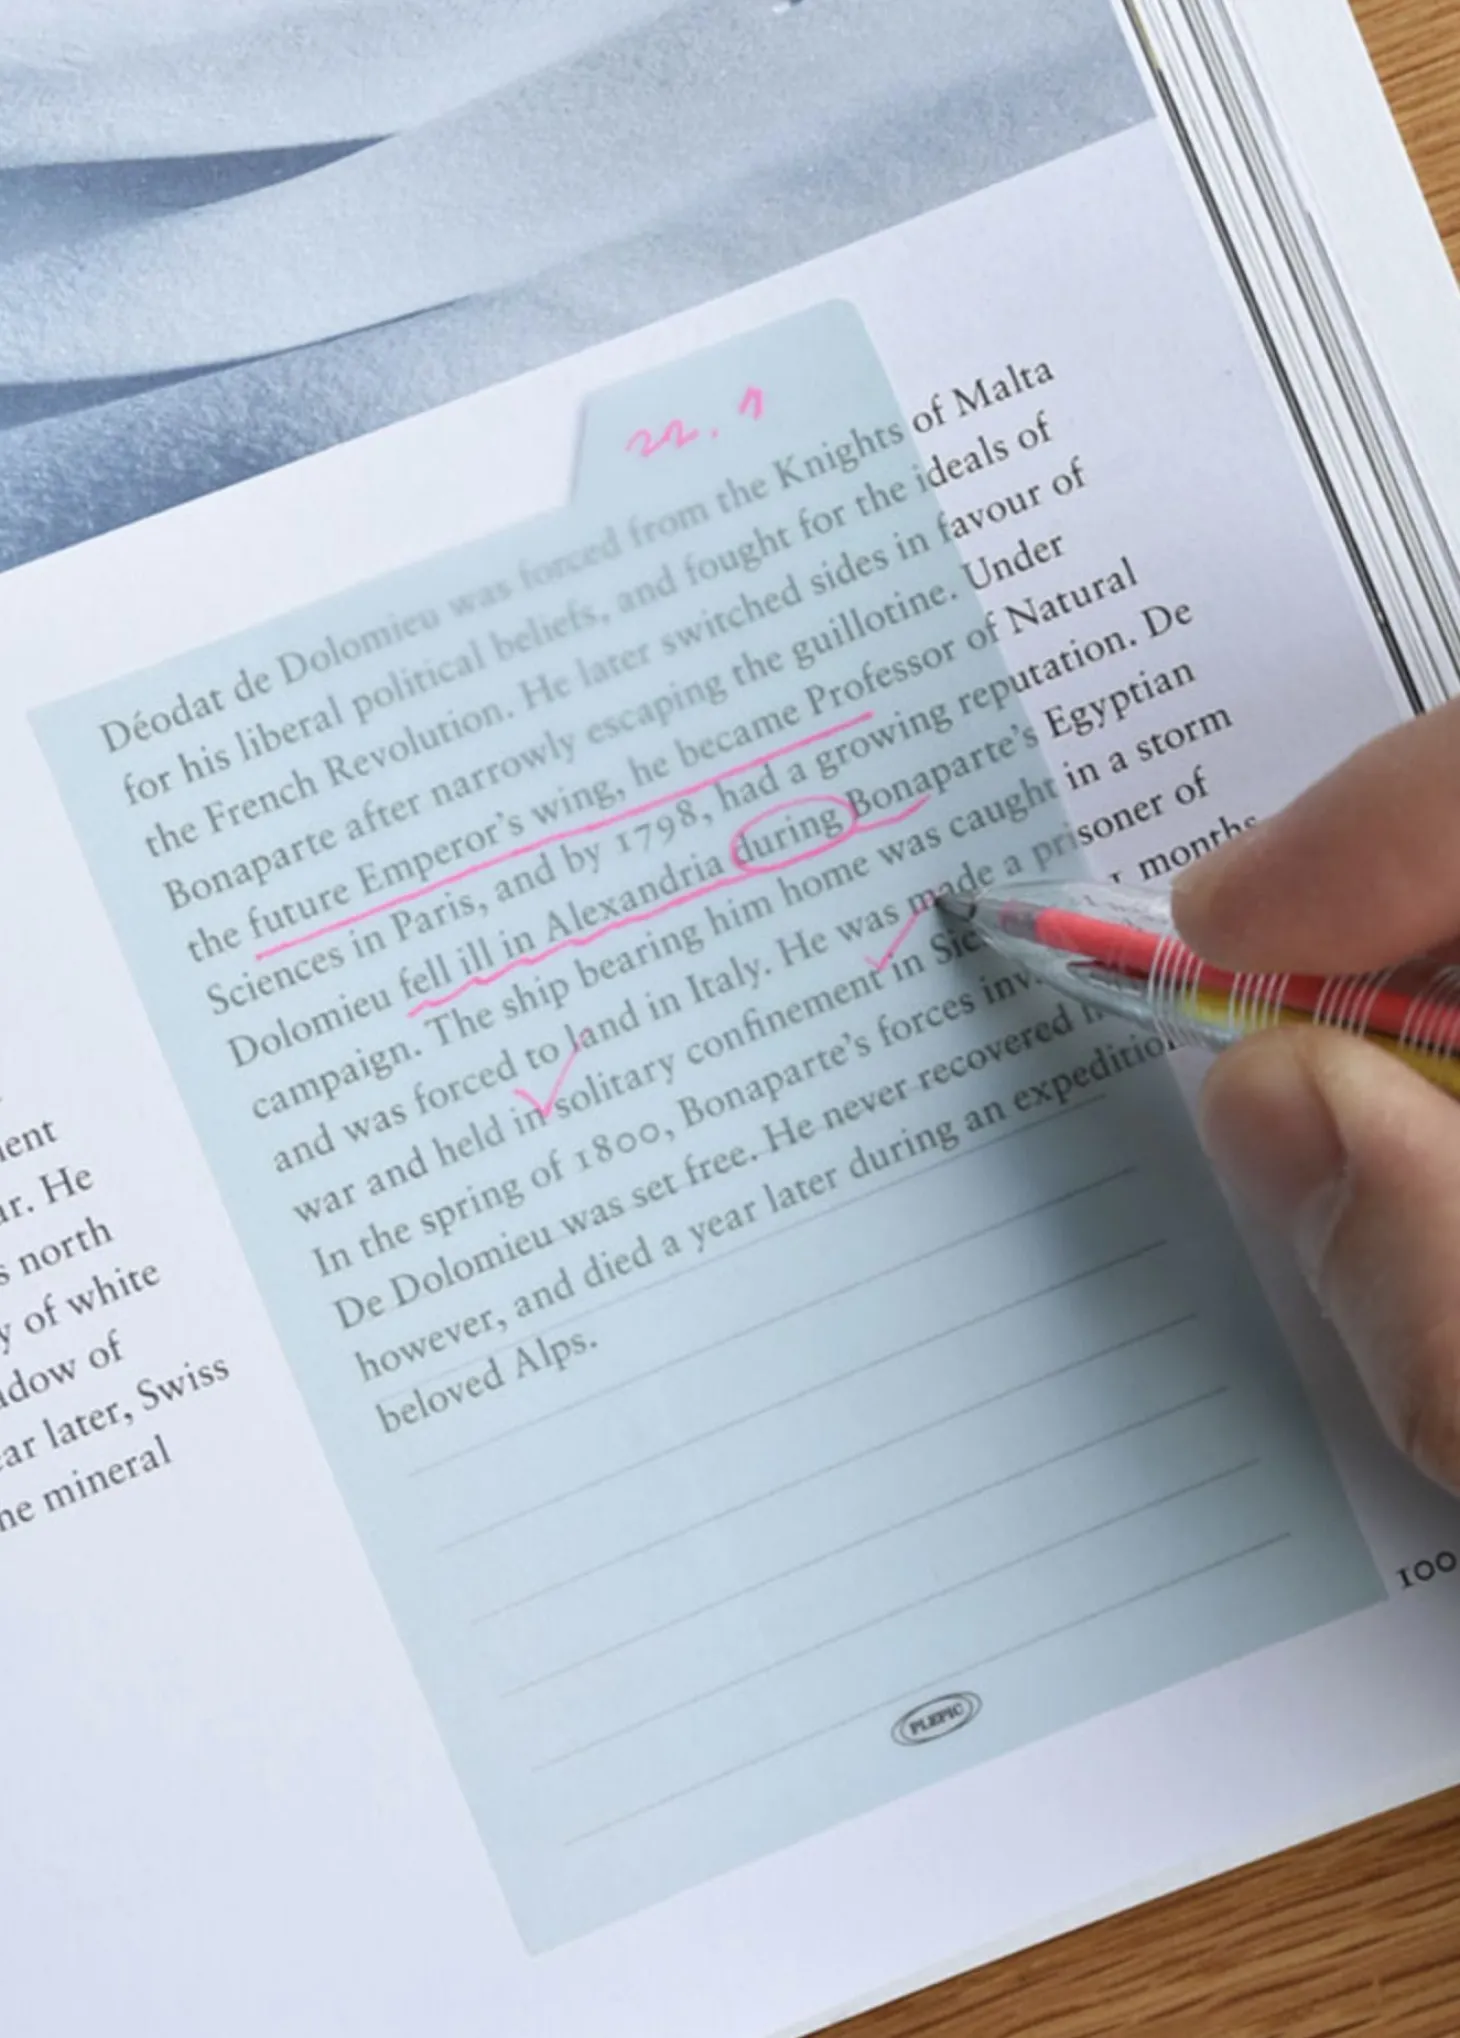 ar. He
s north
y of white
dow of
ear later, Swiss
he mineral
22. 1
Déodat de Dolomieu was forced from the Knights of Malta
for his liberal political beliefs, and fought for the ideals of
the French Revolution. He later switched sides in favour of
Bonaparte after narrowly escaping the guillotine. Under
the future Emperor's wing, he became Professor of Natural
Sciences in Paris, and by 1798, had a growing reputation. De
Dolomieu fell ill in Alexandria during Bonaparte's Egyptian
campaign. The ship bearing him home was caught in a storm
and was forced to land in Italy. He was made a prisoner of
war and held in solitary confinement in months
In the spring of 1800, Bonaparte's forces
De Dolomieu was set free. He never recovered
however, and died a year later during an expedition
beloved Alps.
PLEPIC
100